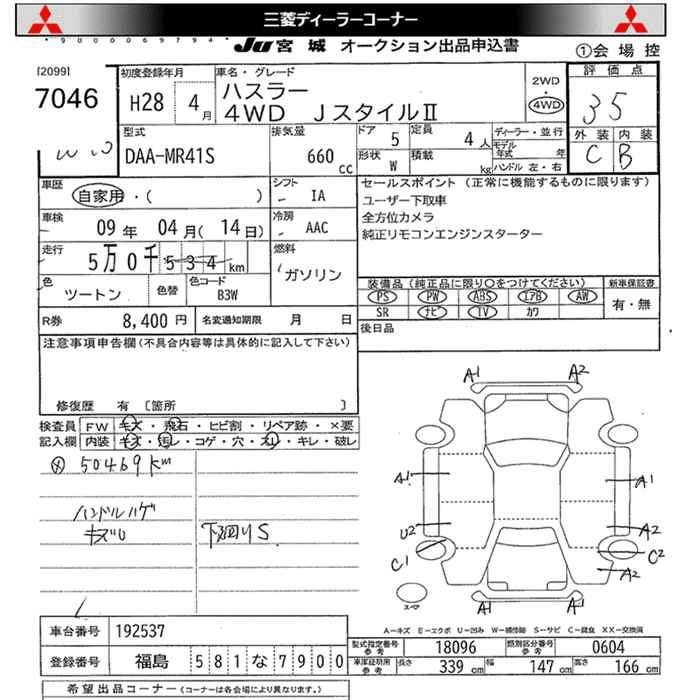 三菱ディーラーコーナー
9000069794
JU 宮城 オークション出品申込書
①会場控
[2099]
7046
初度登録年月
H28 4月
車名・グレード
ハスラー
4WD JスタイルⅡ
2WD
・
4WD
評価点
3.5
外装 内装
C B
型式
DAA-MR41S
排気量
660 cc
ドア 5
定員 4人
形状 W
積載 kg
ディーラー・並行
モデル年式 年
ハンドル 左・右
車歴
自家用・( )
シフト
IA
車検
09年 04月(14日)
冷房
AAC
走行
5万0千534km
燃料
ガソリン
色
ツートン
色替
色コード
B3W
セールスポイント (正常に機能するものに限ります)
ユーザー下取車
全方位カメラ
純正リモコンエンジンスターター
装備品(純正品に限り○をつけてください)
PS PW ABS エアB AW
SR ナビ TV カワ
新車保証書
有・無
R券 8,400円
名変通知期限 月 日
後日品
注意事項申告欄(不具合内容等は具体的に記入して下さい)
修復歴 有 〔箇所 〕
検査員記入欄
FW キズ・飛石・ヒビ割・リペア跡・×要
内装 キズ・汚レ・コゲ・穴・スレ・キレ・破レ
50469km
ハンドルハゲ
キズ
下回りS
A1 A2
A1 A1
U2 A2
C1 C2
A2
スペア
A1 A1
A-キズ E-エクボ U-凹み W-補修跡 S-サビ C-腐食 XX-交換済
車台番号 192537
登録番号 福島 581な7900
型式指定番号 参考 18096
類別区分番号 参考 0604
車庫証明用 参考 長さ 339cm 幅 147cm 高さ 166cm
希望出品コーナー(コーナーは各会場により異なります。)